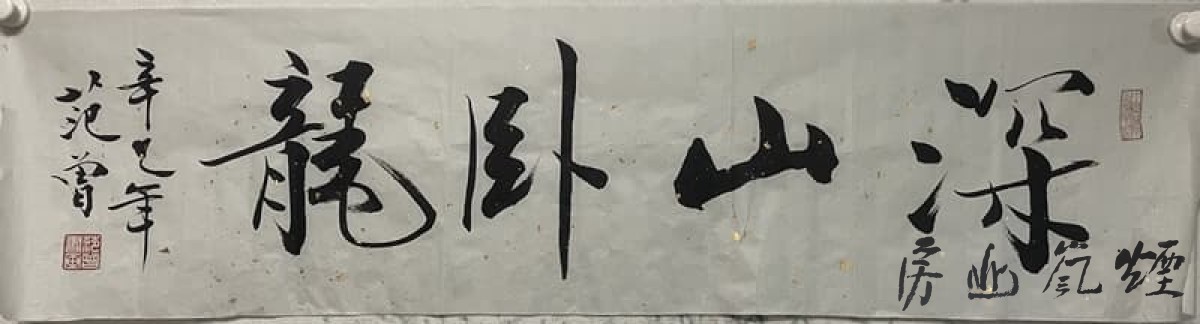 深山卧龍
辛巳年
范曾
煙 房